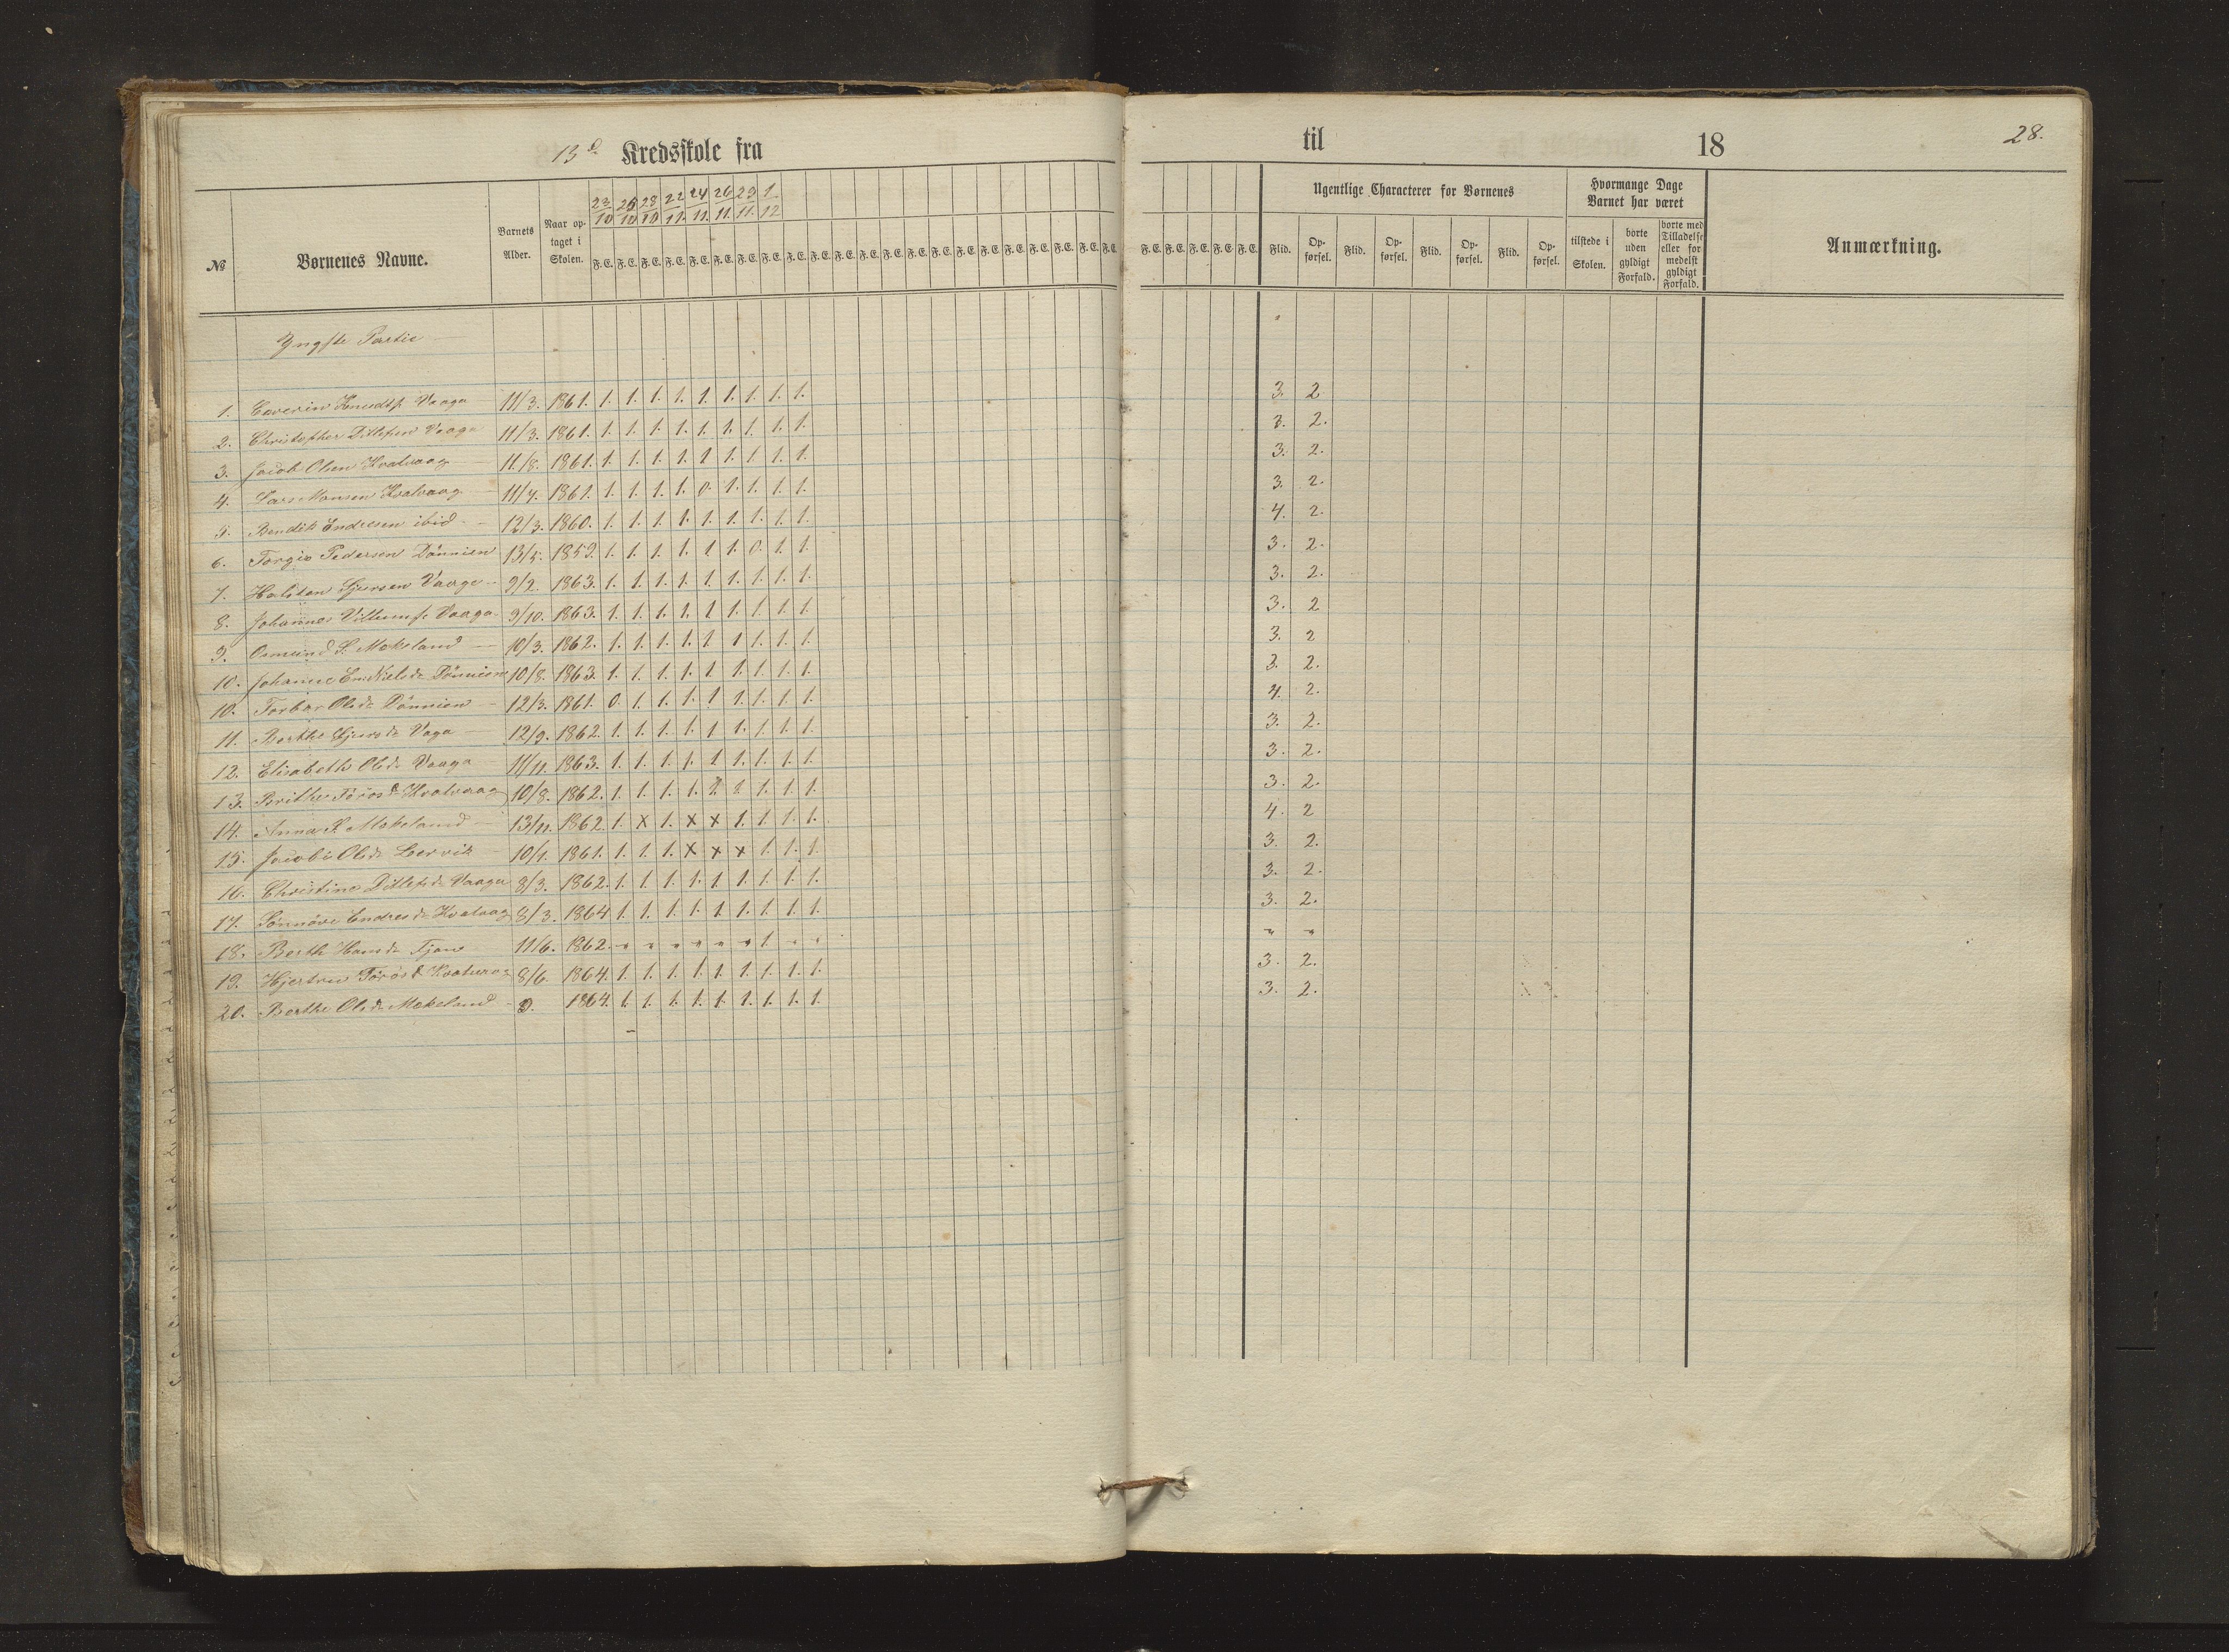 13de Kredsskole fra til 18 28.
№ Børnenes Navne. Barnets Alder. Naar optaget i Skolen. 23/10 26/10 28/10 22/11 24/11. 26/11. 29/11. 1/12 F. E. F. E. F. E. F. E. F. E. F. E. F. E. F. E. F. E. F. E. F. E. F. E. F. E. F. E. F. E. F. E. F. E. F. E. F. E. F. E. F. E. F. E. F. E. F. E. F. E. F. E. F. E. Ugentlige Characterer for Børnenes Flid. Opførsel. Flid. Opførsel. Flid. Opførsel. Flid. Opførsel. Hvormange Dage Barnet har været tilstede i Skolen. borte uden gyldigt Forfald. borte med Tilladelse eller formedelst gyldigt Forfald. Anmærkning.
Yngste Partie
1. Knudts. Vaaga 11/3. 1861. 1. 1. 1. 1. 1. 1. 1. 1. 1. 3. 2
2. Christopher Ditlefsen Vaaga 11/3. 1861. 1. 1. 1. 1. 1. 1. 1. 1. 1. 3. 2.
3. Jacob Olsen Kvalvaag 11/8. 1861. 1. 1. 1. 1. 1 1. 1. 1. 1. 3. 2.
4. Lars Monsen Kvalvaag 11/7. 1861. 1. 1. 1. 1. 0. 1. 1. 1. 1. 3. 2.
5. Bendik Endresen ibid. 12/3. 1860. 1. 1. 1. 1. 1. 1. 1. 1. 1. 4. 2.
6. Torgis Pedersen Dønnien 13/5. 1859. 1. 1. 1. 1. 1 1. 0. 1. 1. 3. 2.
7. Halsten Sjursen Vaage 9/2. 1863. 1. 1. 1. 1. 1. 1. 1. 1. 1. 3. 2.
8. Johannes Villumss. Vaaga 9/10. 1863. 1. 1. 1. 1. 1 1. 1. 1. 1. 3. 2
9. Osmund S. Mokeland 10/3. 1862. 1. 1. 1. 1. 1 1 1. 1. 1. 3. 2
10. Johanne Dønnien 10/8. 1863. 1. 1. 1. 1. 1 1. 1. 1. 1. 3. 2.
10. Torbor Olsdr Dønnien 12/3. 1861. 0. 1. 1. 1. 1 1. 1. 1. 1. 4. 2.
11. Berthe Sjursdr Vaga 12/9. 1862. 1. 1. 1. 1. 1 1. 1. 1. 1. 3. 2.
12. Elisabeth Olsdr Vaaga 11/11. 1863. 1. 1. 1. 1. 1 1. 1. 1. 1. 3. 2.
13. Brithe Kvalvaag 10/8. 1862. 1. 1. 1. 1. 1. 1. 1. 1. 1. 3. 2.
14. Anna K. Mokeland 13/11. 1862. 1. x 1. x x 1. 1. 1. 1. 4. 2
15. Jacobi Olsdr Lervik 10/1. 1861. 1. 1. 1. x x x 1. 1. 1. 3. 2.
16. Christine Ditlefsdr Vaaga 8/3. 1862. 1. 1. 1. 1. 1 1. 1. 1. 1. 3. 2.
17. Sønnøve Endresdr Kvalvaag 8/3. 1864 1. 1. 1. 1. 1. 1. 1. 1. 1. 3. 2.
18. Berthe Hansdr 11/6. 1862. " " " " " " 1. " " " "
19. Hjertru Kvalvaag 8/6. 1864. 1. 1. 1. 1. 1. 1. 1. 1. 1. 3. 2.
20. Berthe Olsdr Mokeland 9. 1864. 1. 1. 1. 1. 1. 1. 1. 1. 1. 3. 2.